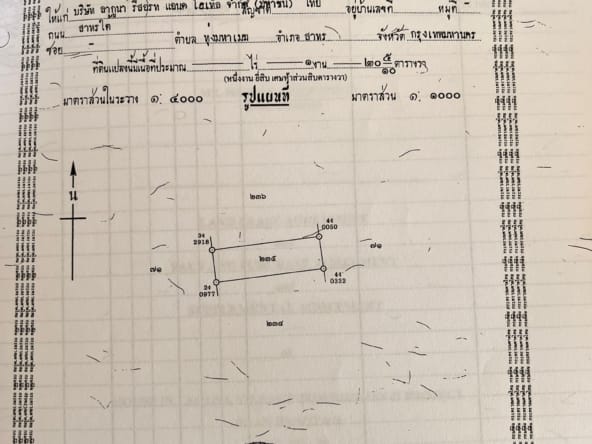 ให้แก่ บริษัท ลากูนา รีสอร์ท แอนด์ โฮเท็ล จำกัด (มหาชน) สัญชาติ ไทย อยู่บ้านเลขที่ - หมู่ที่ -
ถนน สาทรใต้
ซอย - ตำบล ทุ่งมหาเมฆ อำเภอ สาทร จังหวัด กรุงเทพมหานคร
ที่ดินแปลงนี้มีเนื้อที่ประมาณ ไร่ ๑ งาน ๒๐ ๕/๑๐ ตารางวา
(หนึ่งงาน ยี่สิบ เศษห้าส่วนสิบตารางวา)
มาตราส่วนในระวาง ๑: ๔๐๐๐ รูปแผนที่ มาตราส่วน ๑: ๑๐๐๐
น
๒๓๖
34
2918
44
0050
๗๑
๒๓๕
๗๑
24
0977
44
0332
๒๓๔